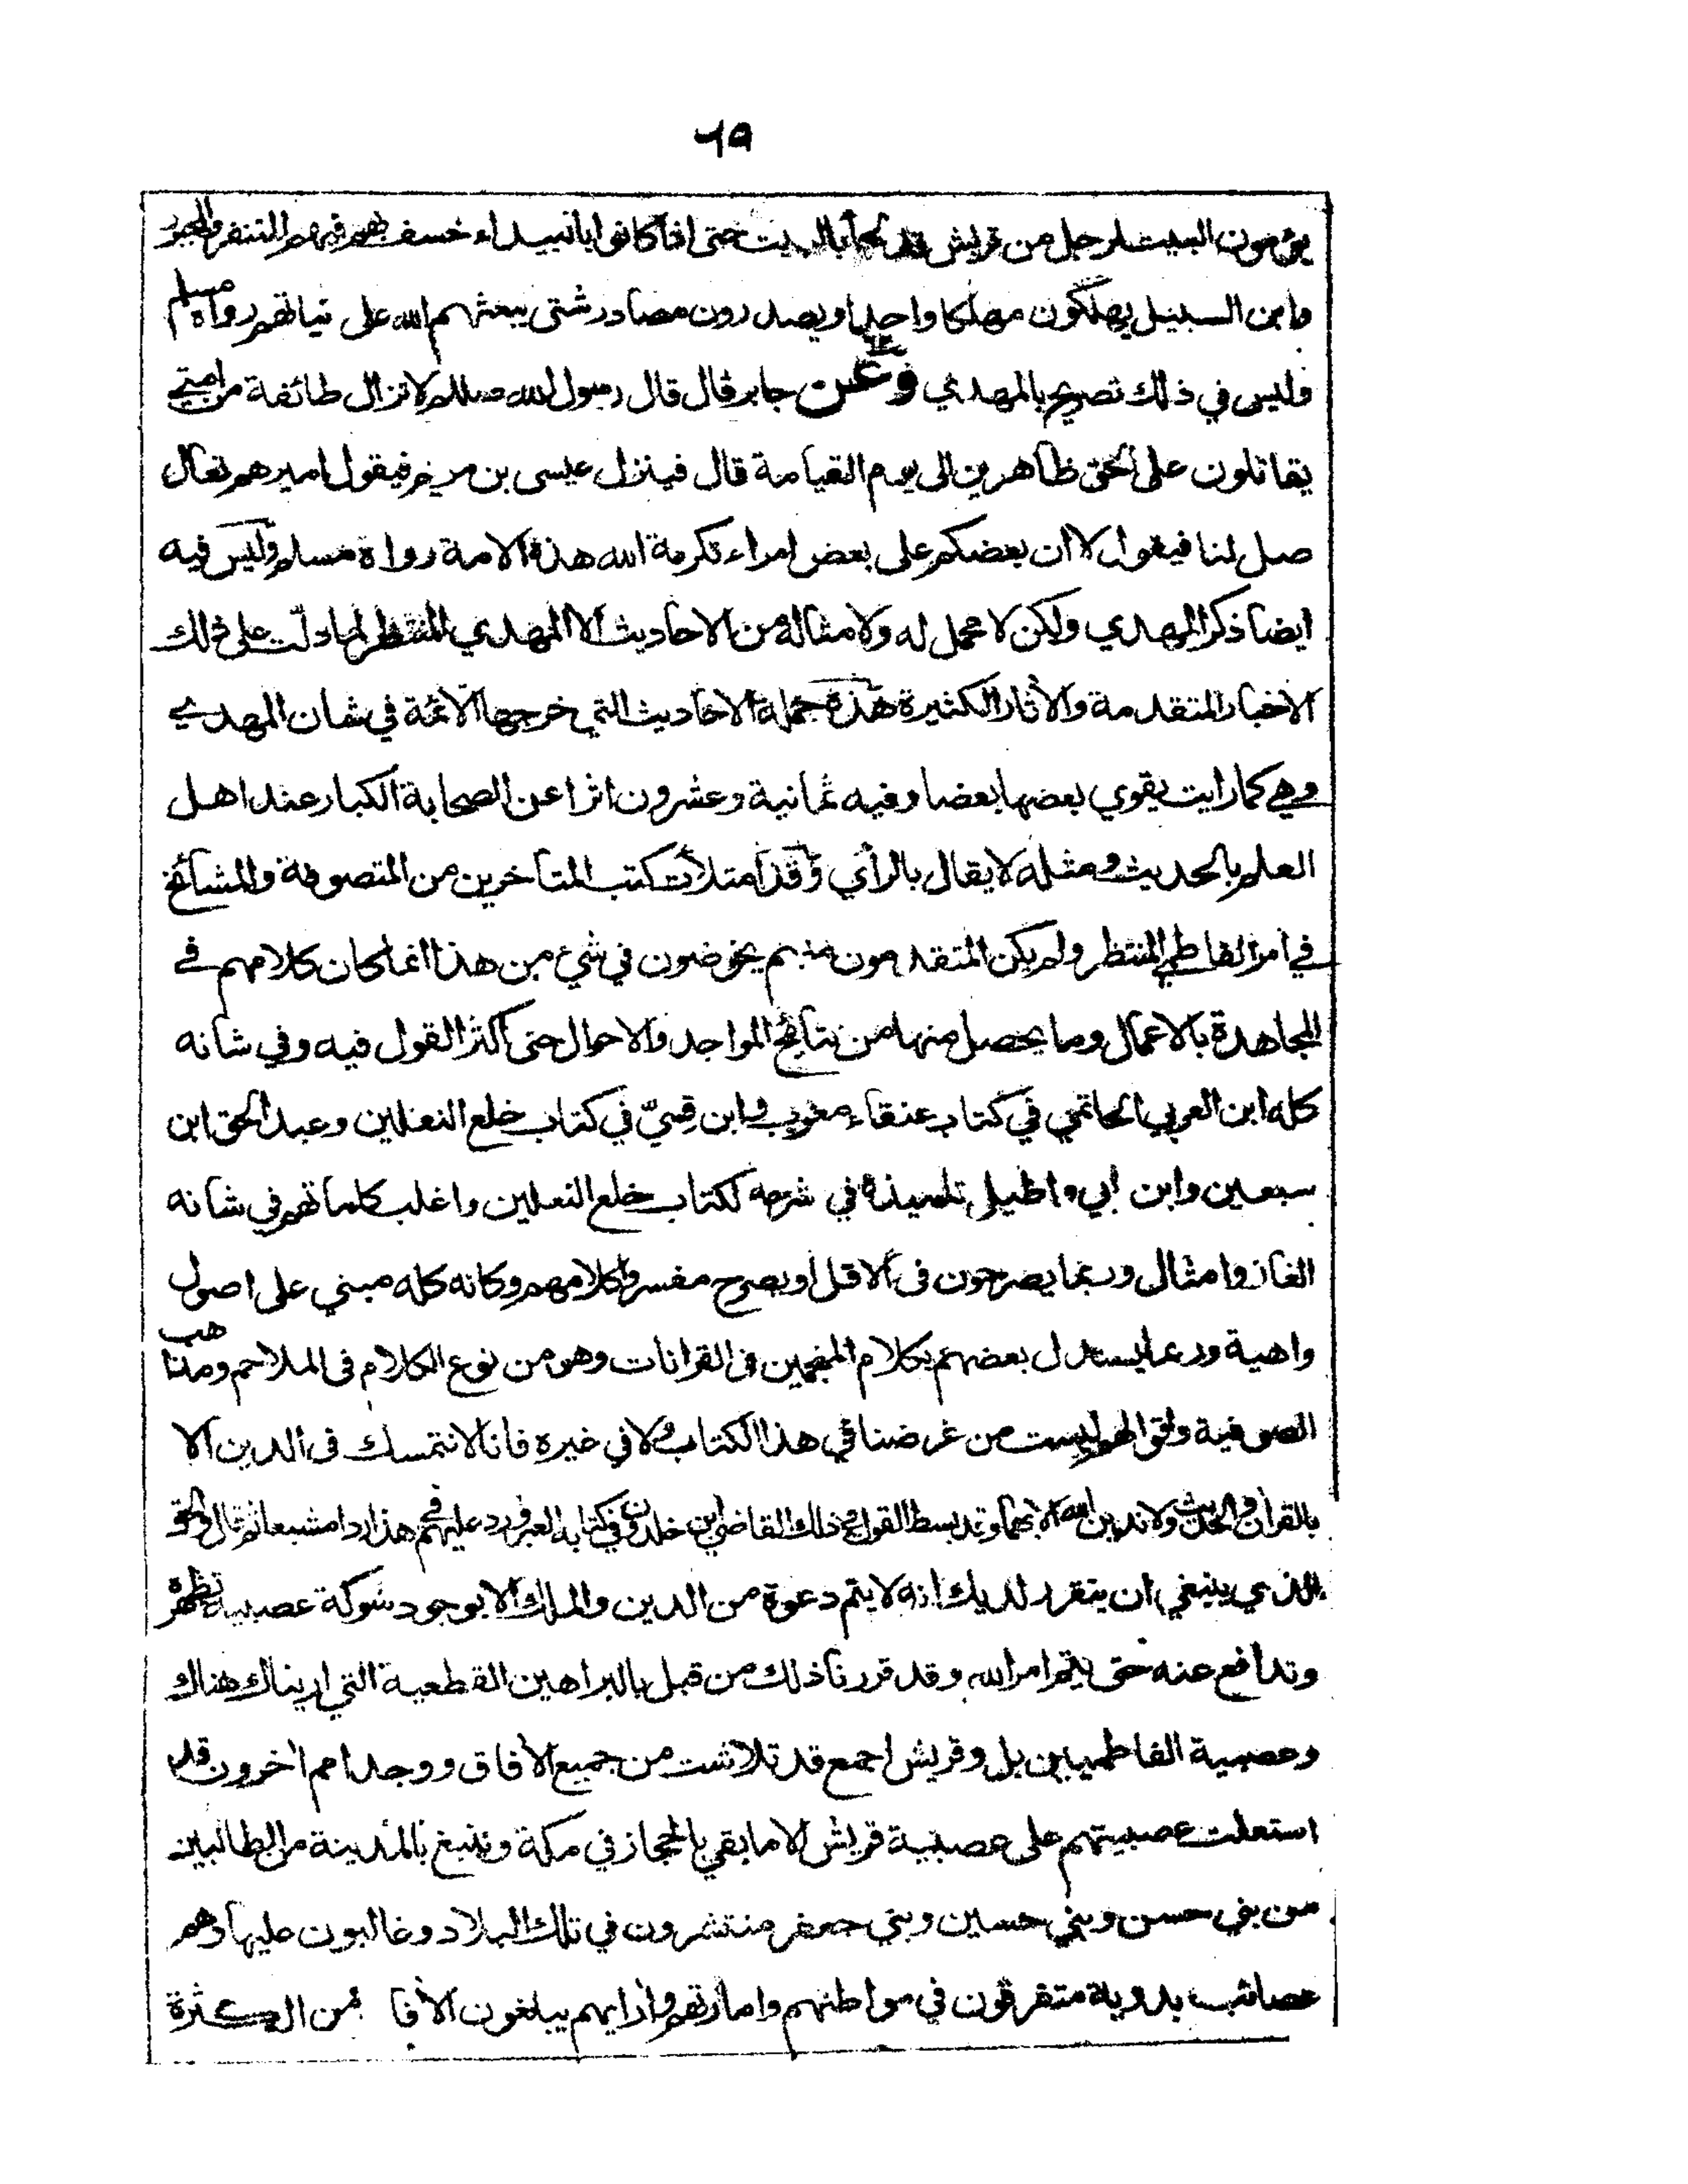 ٦٩
يؤمون البيت لرجل من قريش قد لجأ بالبيت حتى اذا كانوا بالبيداء خسف بهم فيهم المتنفر والمجبور
وابن السبيل يهلكون مهلكا واحدا ويصدرون مصادر شتى يبعثهم الله على نياتهم رواه مسلم
وليس في ذلك تصريح بالمهدي وعن جابر قال قال رسول الله صللم لا تزال طائفة من امتي
يقاتلون على الحق ظاهرين الى يوم القيامة قال فينزل عيسى بن مريم فيقول اميرهم تعال
صل لنا فيقول لا ان بعضكم على بعض امراء تكرمة الله هذه الامة رواه مسلم وليس فيه
ايضا ذكر المهدي ولكن لا محمل له ولامثاله من الاحاديث الا المهدي المنتظر لما دلت على ذلك
الاخبار المتقدمة والآثار الكثيرة هذه جملة الاحاديث التي خرجها الائمة في شان المهدي
وهي كما رايت يقوي بعضها بعضا وفيه ثمانية وعشرون اثرا عن الصحابة الكبار عند اهل
العلم بالحديث ومثله لا يقال بالرأي وقد امتلأت كتب المتأخرين من المتصوفة والمشائخ
في امر الفاطمي المنتظر ولم يكن المتقدمون منهم يخوضون في شيء من هذا انما كان كلامهم في
المجاهدة بالاعمال وما يحصل منها من نتائج المواجد والاحوال حتى اكثر القول فيه وفي شانه
كله ابن العربي الحاتمي في كتاب عنقاء مغرب وابن قسيّ في كتاب خلع النعلين وعبد الحق ابن
سبعين وابن ابي واطيل تلميذه في شرحه لكتاب خلع النعلين واغلب كلماتهم في شانه
الغاز وامثال وربما يصرحون في الاقل او يصرح مفسرو كلامهم وكانه كله مبني على اصول
واهية وربما يستدل بعضهم بكلام المنجمين في القرانات وهو من نوع الكلام في الملاحم ومذاهب
الصوفية ولقوالهم ليست من غرضنا في هذا الكتاب ولا في غيره فانا لا نتمسك في الدين الا
بالقرآن والحديث ولا ندين الله الا بهما وقد بسط القول في ذلك القاضي ابن خلدون في كتابه العبر ورد عليهم في هذا ردا مشبعا ثم قال والحق
الذي ينبغي ان يتقرر لديك انه لا يتم دعوة من الدين والملك الا بوجود شوكة عصبية تظهره
وتدافع عنه حتى يتم امر الله وقد قررنا ذلك من قبل بالبراهين القطعية التي اريناك هناك
وعصبية الفاطميين بل وقريش اجمع قد تلاشت من جميع الآفاق ووجد امم آخرون قد
استعلت عصبيتهم على عصبية قريش الا ما بقي بالحجاز في مكة وينبع بالمدينة من الطالبين
من بني حسن وبني حسين وبني جعفر منتشرون في تلك البلاد وغالبون عليها وهم
عصائب بدوية متفرقون في مواطنهم وامارتهم وآرايهم يبلغون الآفا من الكثرة